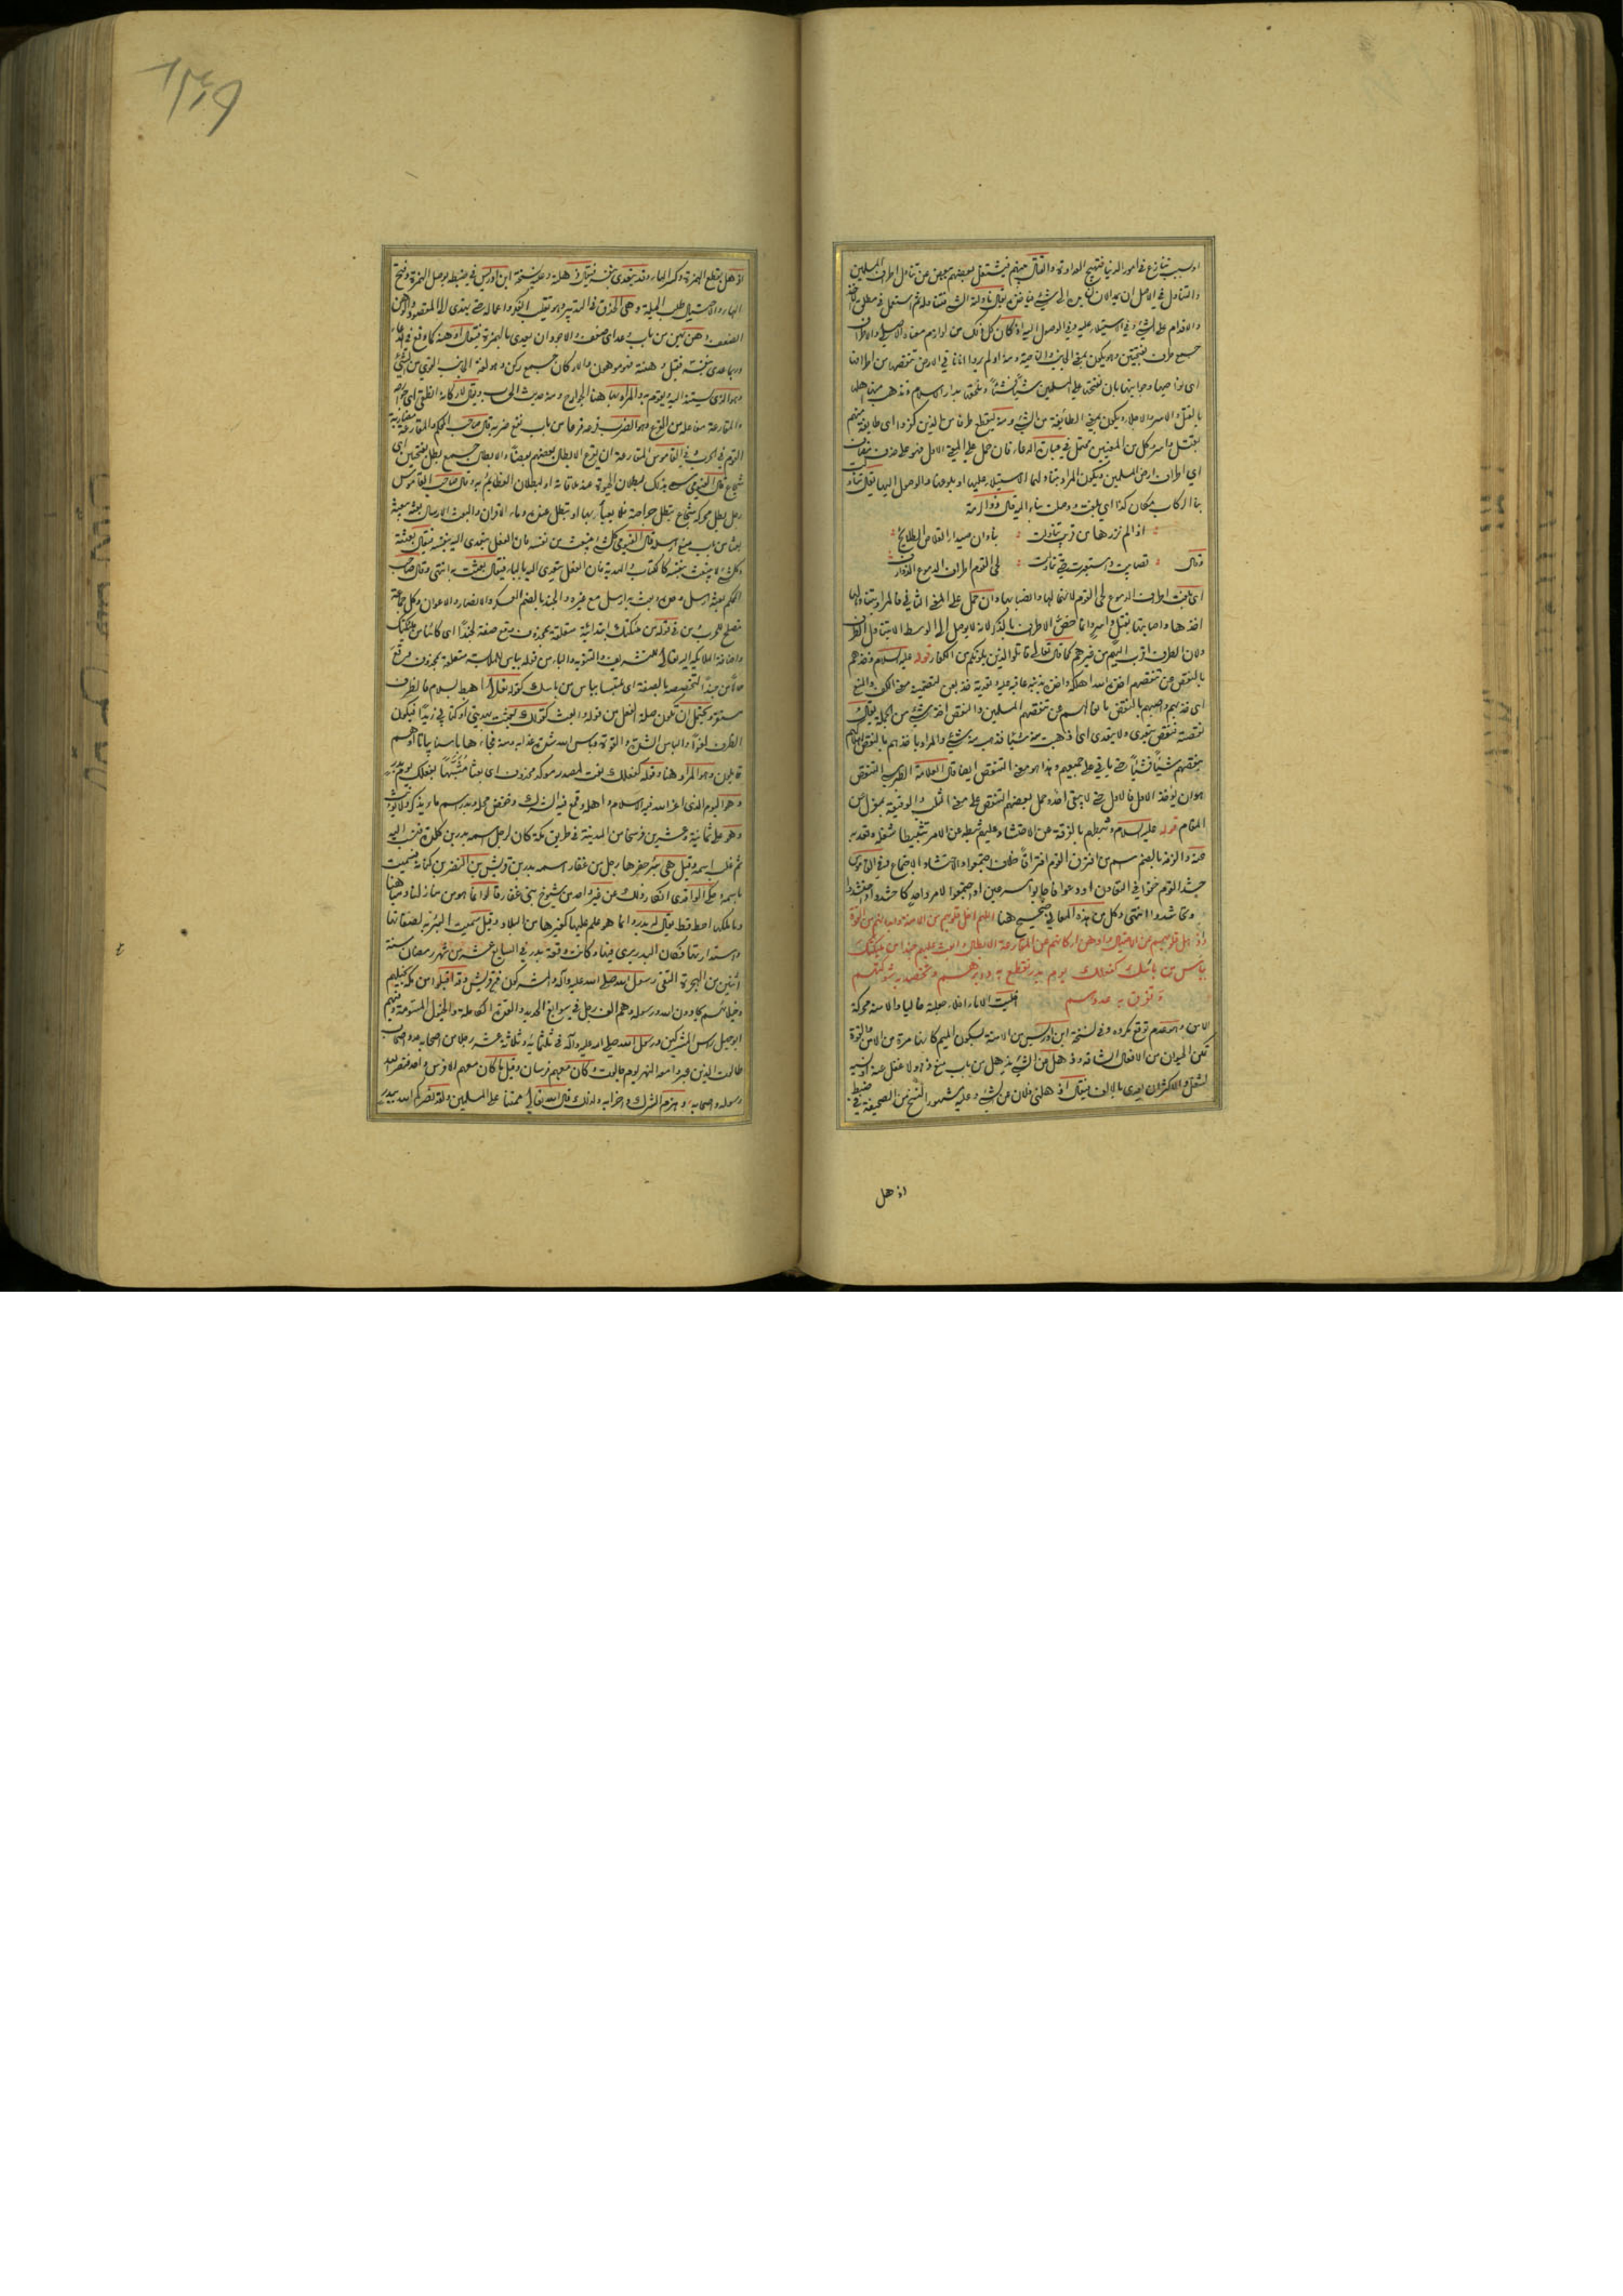 او بسبب تنازع في امور الدنيا فتهيج العداوة والقتال بينهم فيشتغل بعضهم ببعض عن تناول اطراف المسلمين
والتناول في الاصل ان يمد الانسان يده الى شيء
والاقدام على الشيء وفي الاستيلاء عليه وفي الوصول اليه اذ كان كل ذلك من لوازم معناه الاصلي والاطراف
جمع طرف بفتحتين وهو يكون بمعنى الجانب والناحية ومنه اولم يروا انا ناتي الارض ننقصها من اطرافها
اي نواحيها وجوانبها بان نفتحها على المسلمين شيئا فشيئا ونلحقها بدار الاسلام ونذهب منها اهلها
بالقتل والاسر والاجلاء ويكون بمعنى الطائفة من الشيء ومنه ليقطع طرفا من الذين كفروا اي طايفة منهم
بقتل واسر وكل من المعنيين محتمل في عبارة الدعاء فان حمل على المعنى الاول فهو على حذف مضاف
اي اطراف ارض المسلمين ويكون المراد بتناولها الاستيلاء عليها او بلوغها والوصول اليها يقال تناولت
بنا الركاب مكان كذا اي بلغت ووصلت بنا اليه قال ذو الرمة
اذا لم نزرها من قريب تناولت
وقال
الى القوم اطراف الدموع الذوارف
اي بلغت اطراف الدموع الى القوم لانثيالها وانصبابها وان حمل على المعنى الثاني فالمراد بتناولها
اخذها واصابتها بقتل واسر وانما خص الاطراف بالذكر لانه لا يوصل الى الوسط الا بتناول الطرف
ولان الطرف اقرب اليهم من غيرهم كما قال تعالى قاتلوا الذين يلونكم من الكفار قوله عليه السلام وخذهم
بالنقص عن تنقصهم اخذه الله اهلكه واخذه بذنبه عاقبه عليه وتعدية خذ بعن لتضمينه معنى الكف والمنع
اي خذهم واصبهم بالنقص مانعا لهم عن تنقصهم المسلمين والنقص اخذ شيء من الجملة يقال
نقصته فنقص يتعدى ولا يتعدى اي اذهبت منه شيئا فذهب منه شيء والمراد باخذهم بالنقص
بنقصهم شيئا فشيئا حتى ياتي على جميعهم وهذا هو معنى التنقص ايضا قال العلامة الطبرسي التنقص
هو ان يؤخذ الاول فالاول حتى لا يبقى احد وحمل بعضهم التنقص على معنى الثلب والوقيعة بمعزل عن
المقام قوله عليه السلام وثبطهم بالفرقة عن الاحتشاد عليهم ثبطه عن الامر تثبيطا شغله وقعد به
عنه والفرقة بالضم اسم من افترق القوم افتراقا خلاف اجتمعوا والاحتشاد الاجتماع وفي القاموس
حشد القوم خفوا في التعاون او دعوا فاجابوا مسرعين او اجتمعوا لامر واحد كاحشدوا واحتشدوا
وتحاشدوا انتهى وكل من هذه المعاني صحيح هنا اللهم اخل قلوبهم من الامنة وابدانهم من القوة
واذهل قلوبهم عن الاحتيال واوهن اركانهم عن منازلة الرجال وجبنهم عن مقارعة الابطال وابعث عليهم جندا من ملائكتك
بباس من باسك كفعلك يوم بدر تقطع به دابرهم وتحصد به شوكتهم
وتفرق به عددهم اخليت الاناء اخلاء جعلته خاليا والامنة محركة
الامن وهو عدم توقع مكروه وفي نسخة ابن ادريس من الامنة بسكون الميم كانها مرة من الامن والقوة
تمكن الحيوان من الافعال الشاقة وذهل عن الشيء يذهل من باب منع ذهولا غفل عنه او نسيه
لشغل والاكثر ان يعدى بالالف فيقال اذهلني فلان عن الشيء وعليه مشهور النسخ من الصحيفة في ضبط
اذهل
اذهل بقطع الهمزة وكسر الهاء وقد يتعدى بنفسه فيقال ذهلته وعليه نسخة ابن ادريس في ضبطه بوصل الهمزة وفتح
الهاء والاحتيال طلب الحيلة وهي الحذق في التدبير وهو تقليب الفكر واعماله حتى يهتدى الى المقصود والوهن
الضعف وهن يهن من باب وعد اي ضعف والاجود ان يعدى بالهمزة فيقال اوهنته كما وقع في الدعاء
وربما عدي بنفسه فقيل وهنته فهو موهون والاركان جمع ركن وهو لغة الجانب القوي من الشيء
وهو الذي يستند اليه ويقوم به والمراد بها هنا الجوارح ومنه حديث الحساب ويقال لاركانه انطقي اي جوارحه
والمقارعة مفاعلة من القرع وهو الضرب قرعه قرعا من باب نفع ضربه قال صاحب المحكم والمقارعة مضاربة
القوم في الحرب وفي القاموس المقارعة ان يقرع الابطال بعضهم بعضا والابطال جمع بطل بفتحتين اي
شجاع قال الفيومي سمي بذلك لبطلان الحيوة عند ملاقاته او لبطلان العظائم به وقال صاحب القاموس
رجل بطل محركة شجاع تبطل جراحته فلا يعبأ بها او تبطل عنده دماء الاقران والبعث الارسال بعثه يبعثه
بعثا من باب منع ارسله قال الفيومي كل شيء ينبعث من نفسه فان الفعل يتعدى اليه بنفسه فيقال بعثته
وكل شيء لا ينبعث بنفسه كالكتاب والهدية فان الفعل يتعدى اليه بالباء فيقال بعثت به انتهى وقال صاحب
المحكم بعثه ارسله وحده وبعث به ارسله مع غيره والجند بالضم العسكر والانصار والاعوان وكل جماعة
تصلح للحرب من في قوله من ملائكتك ابتدائية متعلقة بمحذوف وقع صفة لجندا اي كائنا من ملائكتك
واضافة الملائكة اليه تعالى للتشريف والتنويه والباء من قوله بباس للملابسة متعلقة بمحذوف وقع
حالا من جندا لتخصيصه بالصفة اي ملتبسا بباس من باسك كقوله تعالى اهبط بسلام فالظرف
مستقر ويحتمل ان تكون صلة الفعل من قوله وابعث كقولك بعثت بهديتي او كتابي زيدا فيكون
الظرف لغوا والباس الشدة والقوة وباس الله شدة عذابه ومنه فجاءها باسنا بياتا او هم
قايلون وهو المراد هنا وقوله كفعلك نعت لمصدر موكد محذوف اي بعثا مشبها بفعلك يوم بدر
وهو اليوم الذي اعز الله فيه الاسلام واهله وقمع فيه الشرك وخفض محله وبدر اسم ماء يذكر ويؤنث
وهو على ثمانية وعشرين فرسخا من المدينة في طريق مكة كان لرجل اسمه بدر بن كلدة فنسب اليه
ثم غلب اسمه وقيل هي بئر حفرها رجل من غفار اسمه بدر بن قريش بن النضر بن كنانة فسميت
باسمه وحكى الواقدي انكار ذلك عن غير واحد من شيوخ بني غفار قالوا انما هو من منازلنا ومياهنا
وما ملكها احد قط يقال له بدر وانما هو علم عليها كغيرها من البلاد وقيل سميت البئر به لصفائها
واستدارتها فكان البدر يرى فيها وكانت وقعة بدر في السابع عشر من شهر رمضان سنة
اثنين من الهجرة التقى رسول الله صلى الله عليه وآله والمشركون من قريش وقد اقبلوا من مكة بخيلهم
وخيلائهم يحادون الله ورسوله وهم الف رجل في سوابغ الحديد والعدة الكاملة والخيول المسومة وفيهم
ابو جهل راس المشركين ورسول الله صلى الله عليه وآله في ثلثمائة وثلاثة عشر رجلا من اصحابه عدد اصحاب
طالوت الذين عبروا معه النهر يوم جالوت وكان معهم فرسان وقيل ما كان معهم الا فرس واحد فنصر الله
رسوله واصحابه وهزم الشرك واحزابه ولذلك قال الله تعالى ممتنا على المسلمين ولقد نصركم الله ببدر